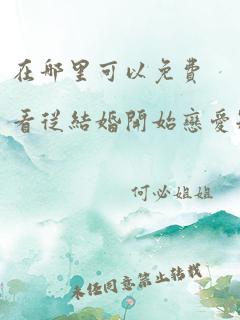 在哪里可以免费
看從結婚開始戀愛
何必姐姐
未经同意禁止转载